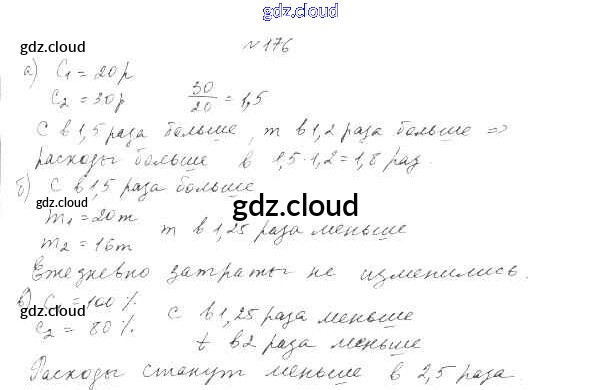 gdz.cloud
№176
gdz.cloud
а) C₁ = 20р
C₂ = 30р 30/20 = 1,5
C в 1,5 раза больше, m в 1,2 раза больше =>
расходы больше в 1,5·1,2=1,8 раз.
б) C в 1,5 раза больше
gdz.cloud
gdz.cloud
m₁ = 20т
m₂ = 16т m в 1,25 раза меньше
Ежедневно затраты не изменились.
в) C₁ = 100%
gdz.cloud
C₂ = 80% C в 1,25 раза меньше
gdz.cloud
t в 2 раза меньше
Расходы станут меньше в 2,5 раза.